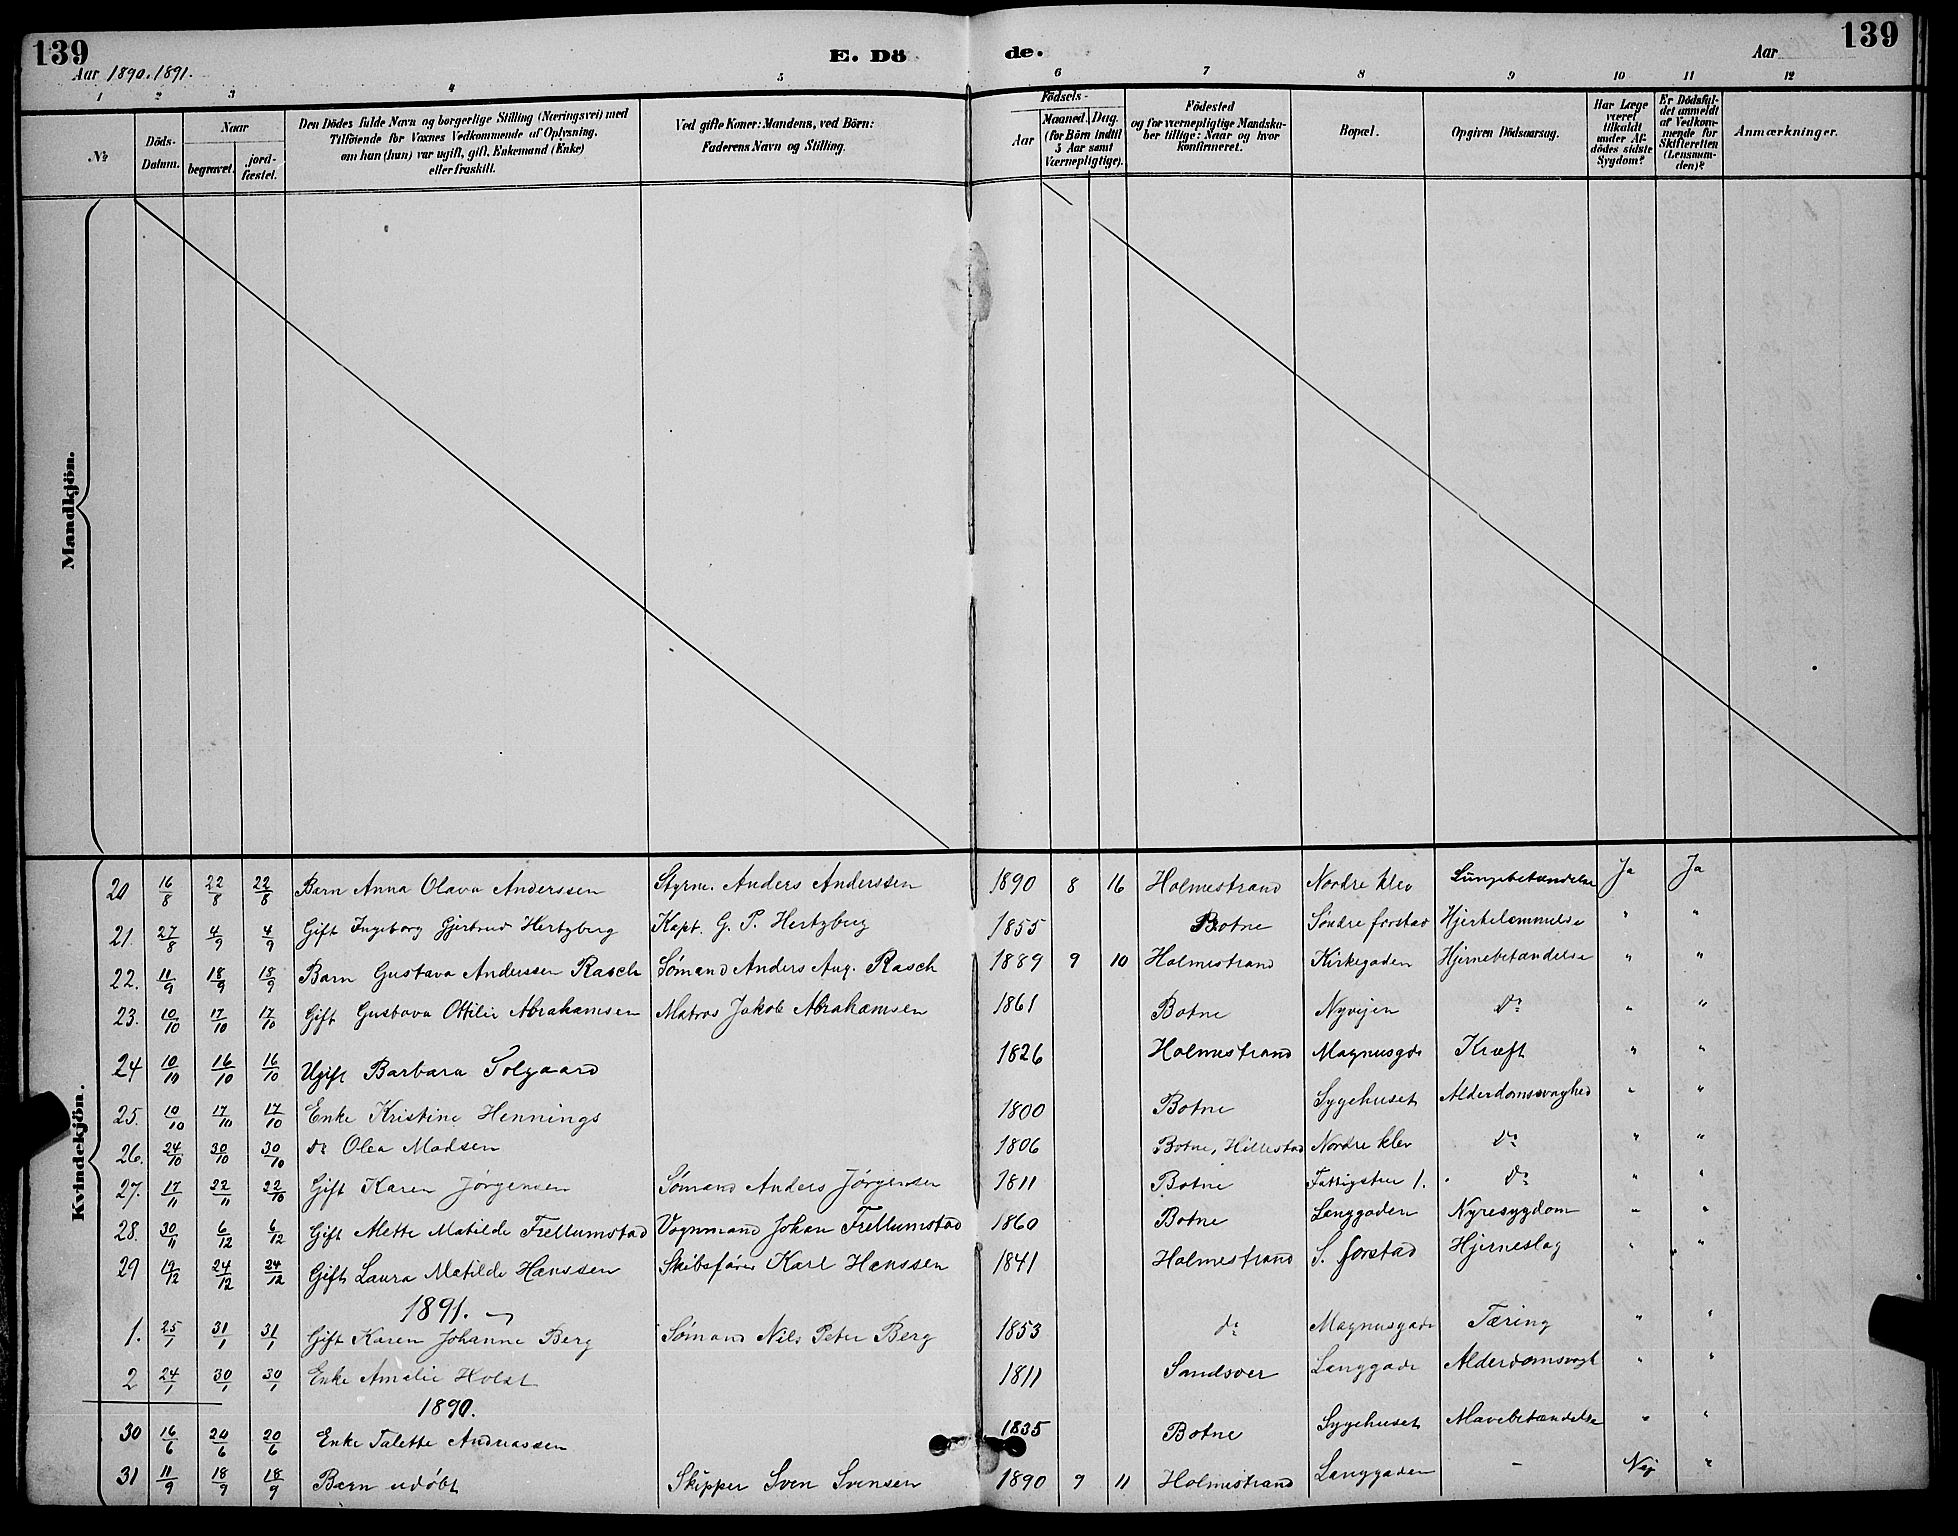 139
E. Dö de.
139
Aar 1890. 1891.
Aar
1 2 3 4 5 6 7 8 9 10 11 12
No
Döds-Datum.
Naar
begravet.
jord-fæstet.
Den Dödes fulde Navn og borgerlige Stilling (Næringsvei) med
Tilföiende for Voxnes Vedkommende af Oplysning,
om han (hun) var ugift, gift, Enkemand (Enke)
eller fraskilt.
Ved gifte Koner: Mandens, ved Börn:
Faderens Navn og Stilling.
Födsels-
Aar
Maaned. Dag.
(for Börn indtil
5 Aar samt
Værnepligtige).
Födested
og for værnepligtige Mandska-
ber tillige: Naar og hvor
konfirmeret.
Bopæl.
Opgiven Dödsaarsag.
Har Læge
været
tilkaldt
under Af-
dödes sidste
Sygdom?
Er Dödsfal-
det anmeldt
af Vedkom-
mende for
Skifteretten
(Lensman-
den)?
Anmærkninger.
Mandkjön.
Kvindekjön.
20 16/8 22/8 22/8 Barn Anna Olava Anderssen Styrm. Anders Anderssen 1890 8 16 Holmestrand Nordre klev Lungebetændelse Ja Ja
21. 27/8 4/9 4/9 Gift Ingeborg Gjertrud Hertzberg Kapt. G. P. Hertzberg 1855 Botne Søndre forstad Hjertelammelse " "
22. 11/9 18/9 18/9 Barn Gustava Anderssen Rasch Sømand Anders Aug. Rasch 1889 9 10 Holmestrand Kirkegaden Hjernebetændelse " "
23. 10/10 17/10 17/10 Gift Gustava Otilie Abrahamsen Matros Jakob Abrahamsen 1861 Botne Nyvejen do " "
24 10/10 16/10 16/10 Ugift Barbara Solgaard 1826 Holmestrand Magnusgde Kræft " "
25. 10/10 17/10 17/10 Enke Kristine Hennings 1800 Botne Sygehuset Alderdomssvaghed " "
26. 24/10 30/10 30/10 do Olea Madsen 1806 Botne, Hillestad Nordre klev do " "
27. 17/11 22/11 22/10 Gift Karen Jørgensen Sømand Anders Jørgensen 1811 Botne do " "
28. 30/11 6/12 6/12 Gift Alette Matilde Frellumstad Vognmand Johan Frellumstad 1860 Botne Langgaden Nyresygdom " "
29 19/12 24/12 24/12 Gift Laura Matilde Hanssen Skibsfører Karl Hanssen 1841 Holmestrand S. forstad Hjerneslag " "
1891.
1. 25/1 31/1 31/1 Gift Karen Johanne Berg Sømand Nils Peter Berg 1853 do Magnusgade Tæring " "
2 24/1 30/1 30/1 Enke Amalie Holst 1811 Sandsver Langgade Alderdomsvagh " "
1890.
30 16/6 20/6 20/6 Enke Talette Andreassen 1835 Botne Sygehuset Mavebetændelse " "
31 11/9 18/9 18/9 Barn udøbt Skipper Sven Svensen 1890 9 11 Holmestrand Langgaden – Nej "